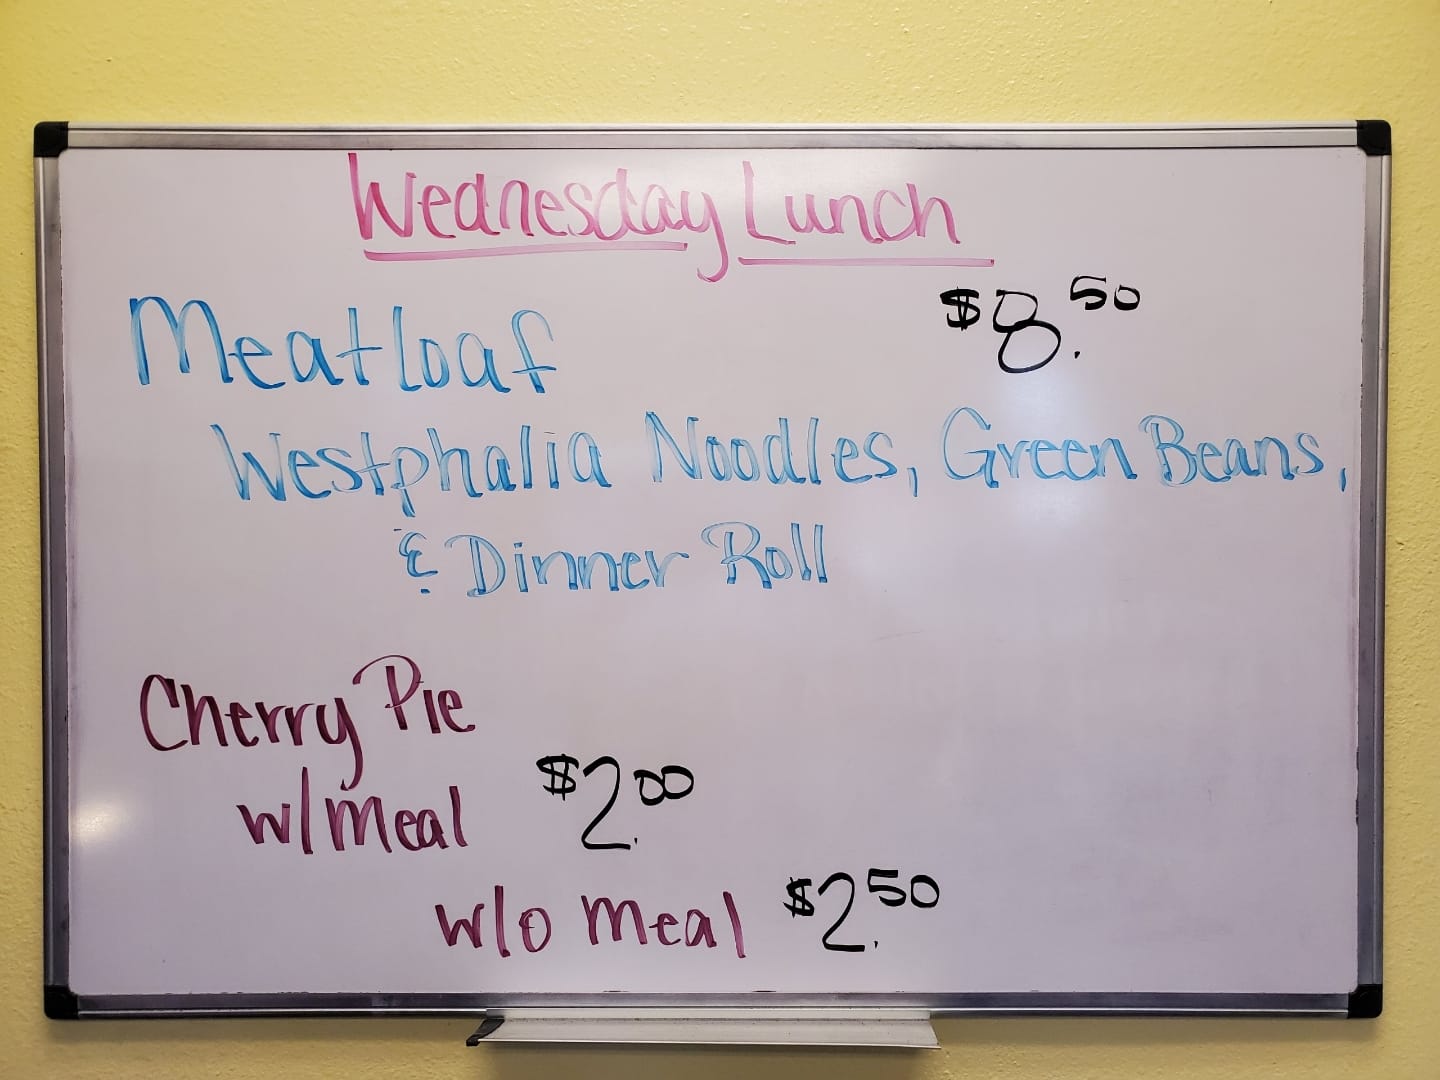 Wednesday Lunch
Meatloaf $8.50
Westphalia Noodles, Green Beans,
& Dinner Roll
Cherry Pie
w/meal $2.00
w/o meal $2.50